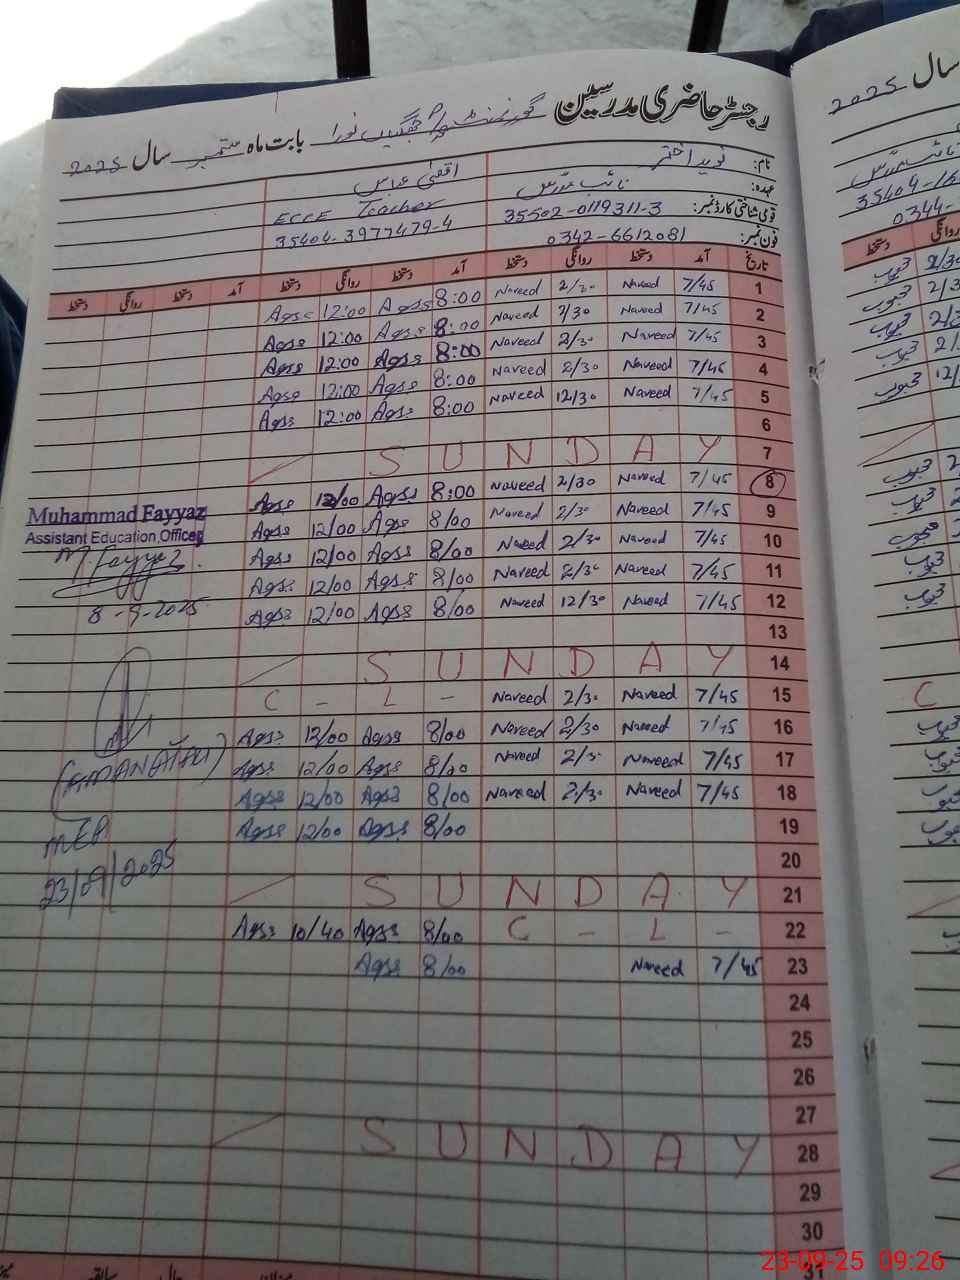 رجسٹر حاضری مدرسین گورنمنٹ بابت ماہ ستمبر سال 2025
نام: نوید اختر اقصیٰ عباس
عہدہ: نائب مدرس ECCE Teacher
قومی شناختی کارڈ نمبر: 35502-0119311-3 35404-3977479-4
فون نمبر: 0342-6612081
تاریخ آمد دستخط روانگی دستخط آمد دستخط روانگی دستخط آمد دستخط روانگی دستخط
1 7/45 Naveed 2/30 Naveed 8:00 Aqsa 12:00 Aqsa
2 7/45 Naveed 2/30 Naveed 8:00 Aqsa 12:00 Aqsa
3 7/45 Naveed 2/30 Naveed 8:00 Aqsa 12:00 Aqsa
4 7/45 Naveed 2/30 Naveed 8:00 Aqsa 12:00 Aqsa
5 7/45 Naveed 12/30 Naveed 8:00 Aqsa 12:00 Aqsa
6
7 SUNDAY
8 7/45 Naveed 2/30 Naveed 8:00 Aqsa 12/00 Aqsa
9 7/45 Naveed 2/30 Naveed 8/00 Aqsa 12/00 Aqsa
10 7/45 Naveed 2/30 Naveed 8/00 Aqsa 12/00 Aqsa
11 7/45 Naveed 2/30 Naveed 8/00 Aqsa 12/00 Aqsa
12 7/45 Naveed 12/30 Naveed 8/00 Aqsa 12/00 Aqsa
13
14 SUNDAY
15 7/45 Naveed 2/30 Naveed C - L -
16 7/45 Naveed 2/30 Naveed 8/00 Aqsa 12/00 Aqsa
17 7/45 Naveed 2/30 Naveed 8/00 Aqsa 12/00 Aqsa
18 7/45 Naveed 2/30 Naveed 8/00 Aqsa 12/00 Aqsa
19 8/00 Aqsa 12/00 Aqsa
20
21 SUNDAY
22 C - L - 8/00 Aqsa 10/40 Aqsa
23 7/45 Naveed 8/00 Aqsa
24
25
26
27
28 SUNDAY
29
30
31
Muhammad Fayyaz
Assistant Education Officer
M. Fayyaz
8-9-2025
MEA
23/09/2025
سال 2025
نائب مدرس
35404-16
0344-
روانگی دستخط
23-09-25 09:26